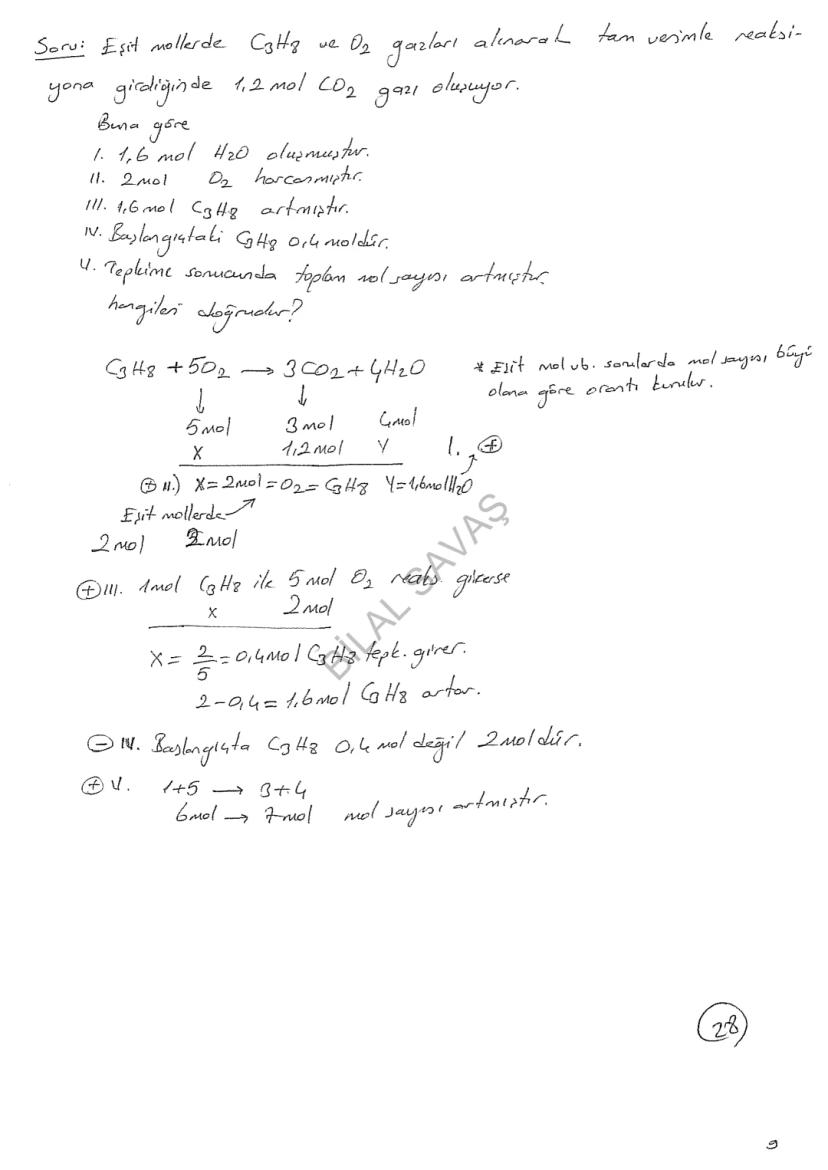 Soru: Eşit mollerde C3H8 ve O2 gazları alınarak tam verimle reaksi-
yona girdiğinde 1,2 mol CO2 gazı oluşuyor.
Buna göre
I. 1,6 mol H2O oluşmuştur.
II. 2mol O2 harcanmıştır.
III. 1,6mol C3H8 artmıştır.
IV. Başlangıçtaki C3H8 0,4 moldür.
V. Tepkime sonucunda toplam mol sayısı artmıştır.
hangileri doğrudur?
C3H8 + 5O2 → 3CO2 + 4H2O
* Eşit mol vb. sorularda mol sayısı büyü
olana göre orantı kurulur.
↓ ↓
5mol 3mol 4mol
X 1,2mol Y I. +
+ II.) X=2mol=O2=C3H8 Y=1,6molH2O
Eşit mollerde
2mol 2mol
+ III. 1mol C3H8 ile 5mol O2 reaks. girerse
x 2mol
X = 2/5 = 0,4mol C3H8 tepk. girer.
2-0,4 = 1,6mol C3H8 artar.
- IV. Başlangıçta C3H8 0,4 mol değil 2moldür.
+ V. 1+5 → 3+4
6mol → 7mol mol sayısı artmıştır.
BİLAL SAVAŞ
28
9